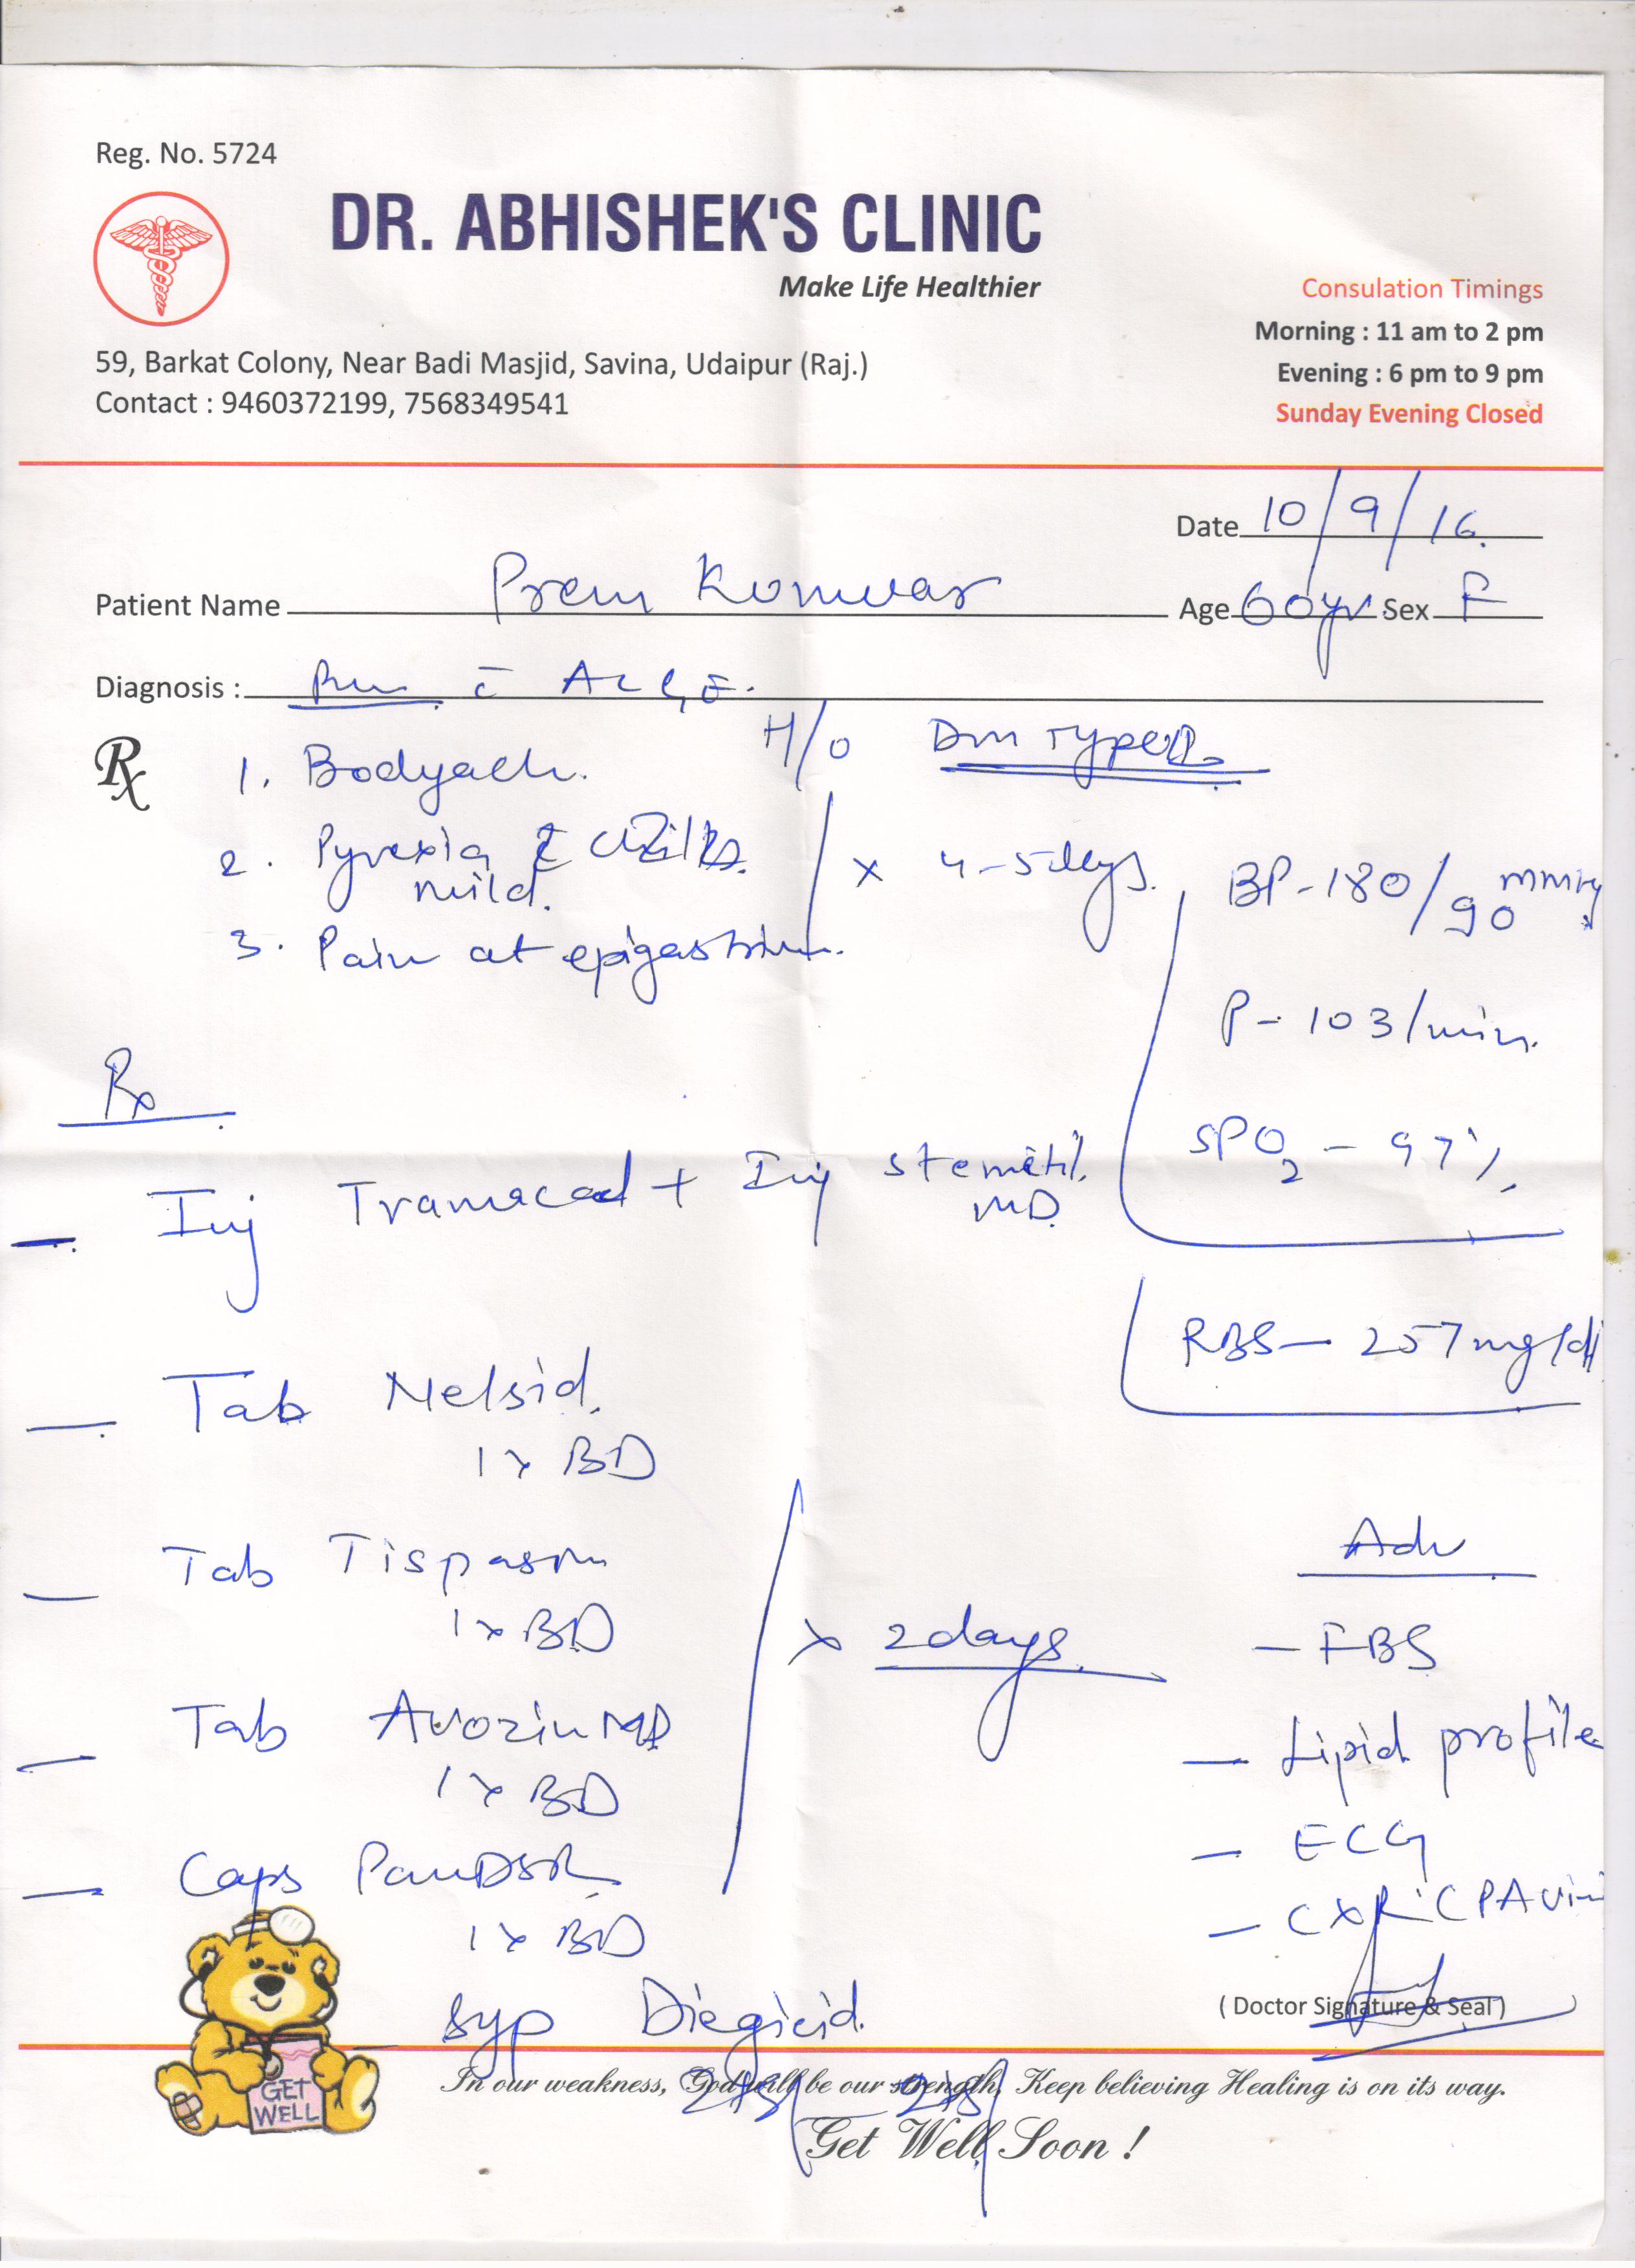 Reg. No. 5724
DR. ABHISHEK'S CLINIC
Make Life Healthier
Consulation Timings
Morning : 11 am to 2 pm
Evening : 6 pm to 9 pm
Sunday Evening Closed
59, Barkat Colony, Near Badi Masjid, Savina, Udaipur (Raj.)
Contact : 9460372199, 7568349541
Date 10/9/16
Patient Name Prem Konwar Age 60yr Sex F
Diagnosis :
H/O Dm Type
Rx
1. Bodyach.
2. Pyrexia c̄ chills.
mild.
3. Pain at epigastrium.
x 4-5 days.
BP - 180/90 mmHg
P - 103/min.
SPO2 - 97%
Rx
- Inj Tramacad + Inj Stemetil
MD.
RBS - 257mg/dl
- Tab Nelsid.
1 x BD
- Tab Tispasm
1 x BD
- Tab Avozin MD
1 x BD
- Caps PanDSR
1 x BD
x 2days.
Adv
- FBS
- Lipid profile
- ECG
- CXR (PA
syp
( Doctor Signature & Seal )
GET
WELL
In our weakness, God will be our strength, Keep believing Healing is on its way.
Get Well Soon !